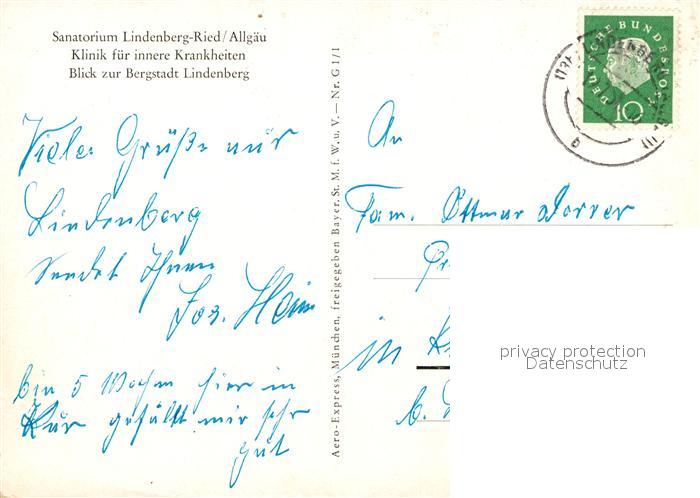 Sanatorium Lindenberg-Ried/Allgäu
Klinik für innere Krankheiten
Blick zur Bergstadt Lindenberg
Viele Grüße aus
Lindenberg
sendet Ihnen
Jos. Hein
bin 5 Wochen hier in
Kur gefällt mir sehr
gut
Aero-Express, München, freigegeben Bayer. St. M. f. W. u. V. — Nr. G 1/1
DEUTSCHE BUNDESPOST
10
An
Fam. Ottmar Dorrer
in
b.
privacy protection
Datenschutz